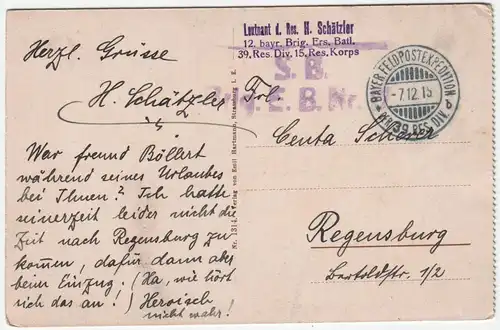 Herzl. Grüsse
H. Schätzler
War freund Böllert
während seines Urlaubes
bei Ihnen? Ich hatte
seinerzeit leider nicht die
Zeit nach Regensburg zu
kommen, dafür dann aber
beim Einzug. (Ha, wie hört
sich das an!) Heroisch
nicht wahr!
Nr. 1314. Verlag von Emil Hartmann, Strassburg i. E.
Leutnant d. Res. H. Schätzler
12. bayr. Brig. Ers. Batl.
39. Res. Div. 15. Res. Korps
S. B.
E. B. Nr.
BAYER. FELDPOSTEXPEDITION
-7.12.15
39. RES. DIV.
Frl.
Centa
Regensburg
Bertoldstr. 1/2